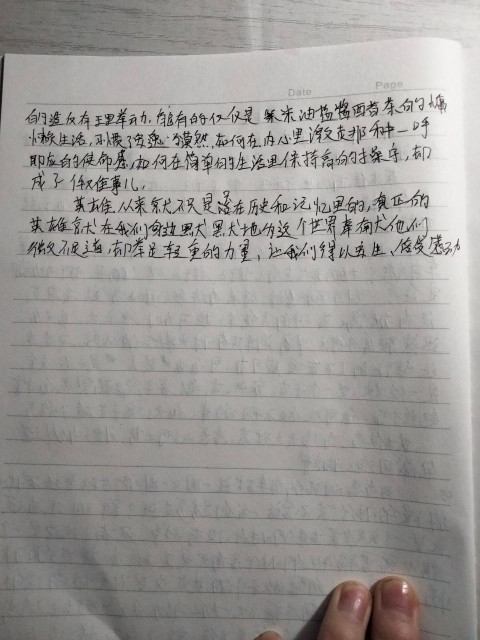 Date Page
的造反有王里举动，能有的仅仅是柴米油盐酱醋茶白的慵
懒生活，习惯了安逸与漠然，如何在内心里激起那种一呼
即应的使命感，如何在简单的生活里保持高的操守，却
成了件难事儿。
英雄，从来就不只是活在历史和记忆里的，真正的
英雄就在我们默默地为这个世界奉献他们
微不足道，却举足轻重的力量，让我们得以五生，感受感动